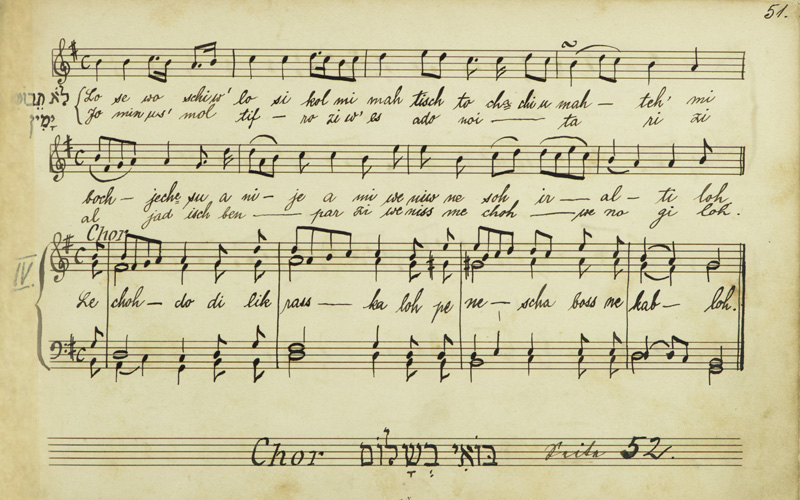 51.
C
לא תבושי Lo se wo schiw' lo si kol mi mah tisch to chz chi u mah — teh' mi
ימין Jo min us' mol tif — ro zi w' es ado noi — ta ri zi
C
boch — jeche su a ni — je a mi we niw ne soh ir — al — ti loh
al jad isch ben — par zi we niss me choh — we no gi loh.
Chor
IV. C
Le choh — do di lik rass — ka loh pe ne — scha boss ne kab — loh.
C
Chor בואי בשלום Seite 52.